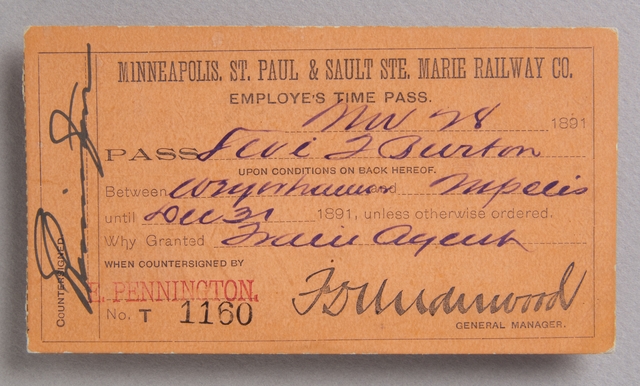 MINNEAPOLIS, ST. PAUL & SAULT STE. MARIE RAILWAY CO.
EMPLOYE'S TIME PASS.
Nov 28 1891
PASS Levi L Burton
UPON CONDITIONS ON BACK HEREOF.
Between Weyerhauser and Mpolis
until Dec 31 1891, unless otherwise ordered.
Why Granted Train Agent
WHEN COUNTERSIGNED BY
E. PENNINGTON.
No. T 1160
F D Underwood
GENERAL MANAGER.
COUNTERSIGNED
Pennington